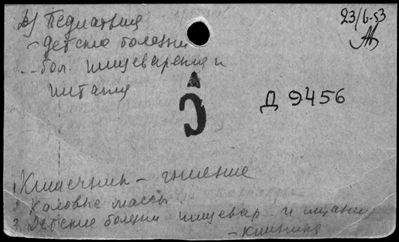 в) Педиатрия
23/6-53
- детские болезни
- бол. пищеварения и
питания
С
Д 9456
1 Кишечник - гниение
2 Каловые массы
3. Детские болезни пищевар. и питания
- клиника